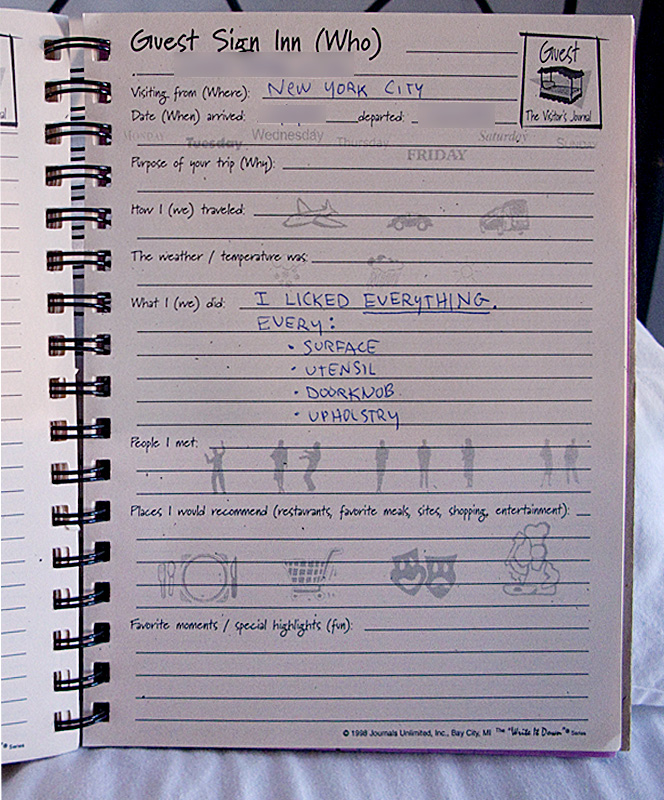 Guest Sign Inn (Who)
Guest
The Visitor's Journal
Visiting from (Where): NEW YORK CITY
Date (When) arrived: departed:
MONDAY Tuesday Wednesday Thursday FRIDAY Saturday Sunday
Purpose of your trip (Why):
How I (we) traveled:
The weather / temperature was:
What I (we) did: I LICKED EVERYTHING.
EVERY:
• SURFACE
• UTENSIL
• DOORKNOB
• UPHOLSTRY
People I met:
Places I would recommend (restaurants, favorite meals, sites, shopping, entertainment):
Favorite moments / special highlights (fun):
© 1998 Journals Unlimited, Inc., Bay City, MI The "Write It Down"® Series
® Series